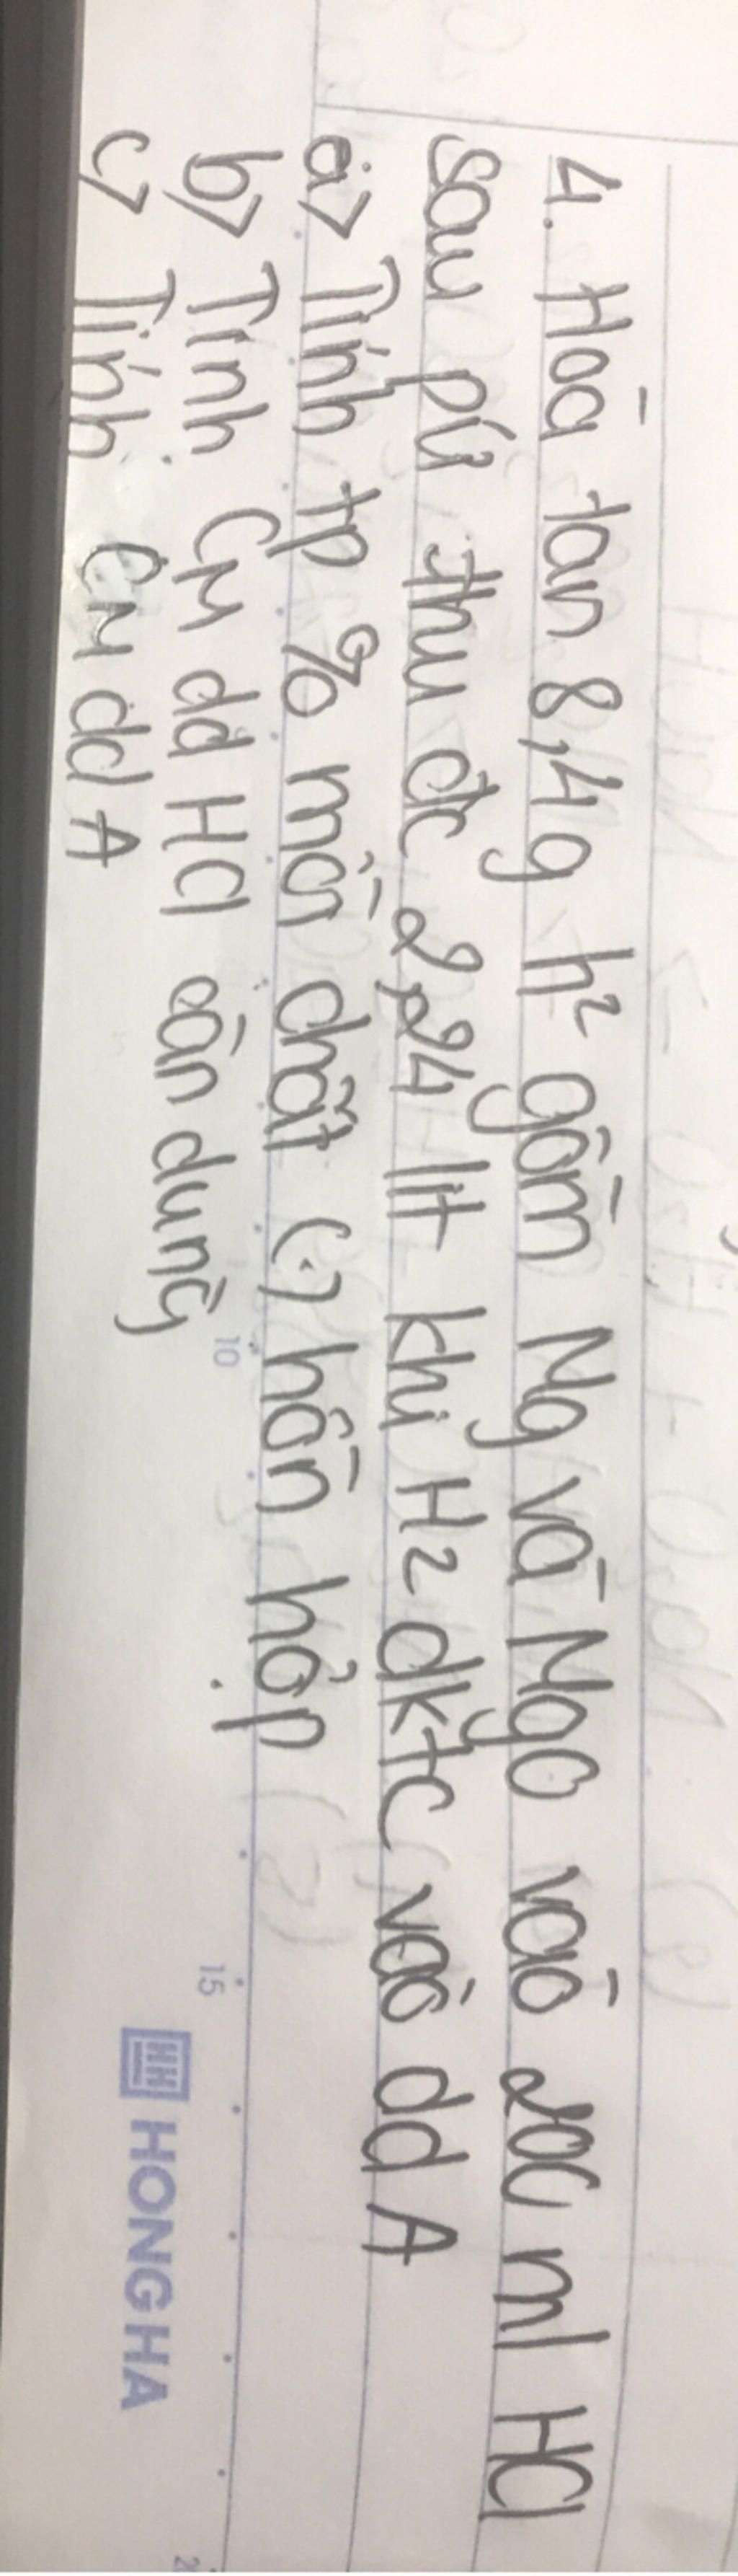 4. Hoà tan 8,4g h² gồm Mg và MgO vào 200 ml HCl
sau pứ thu đc 2,24 lít khí H2 đktc vào dd A
a> Tính tp % mỗi chất (.) hỗn hợp
b> Tính CM dd HCl cần dùng
c> Tính CM dd A
10
15
HONG HA